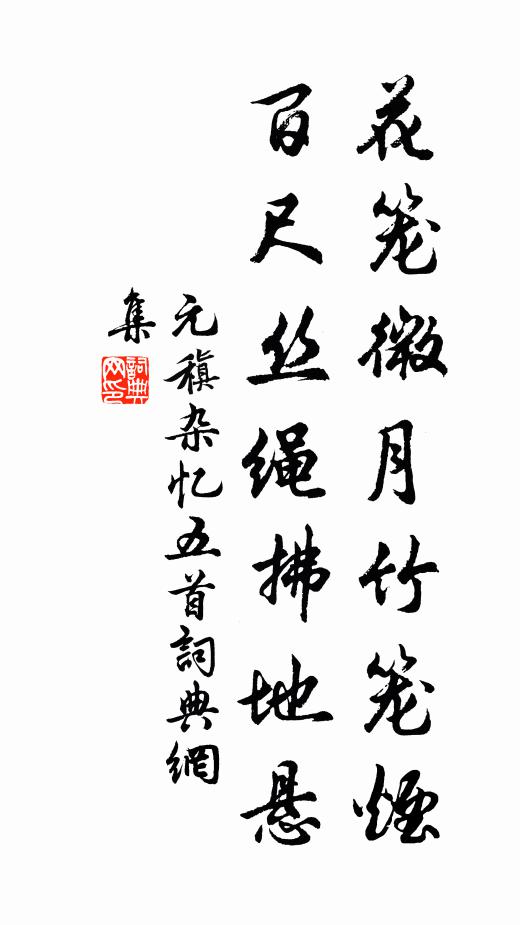 花笼微月竹笼烟
百尺丝绳拂地悬
元稹杂忆五首詞典網
集
詞典
网印